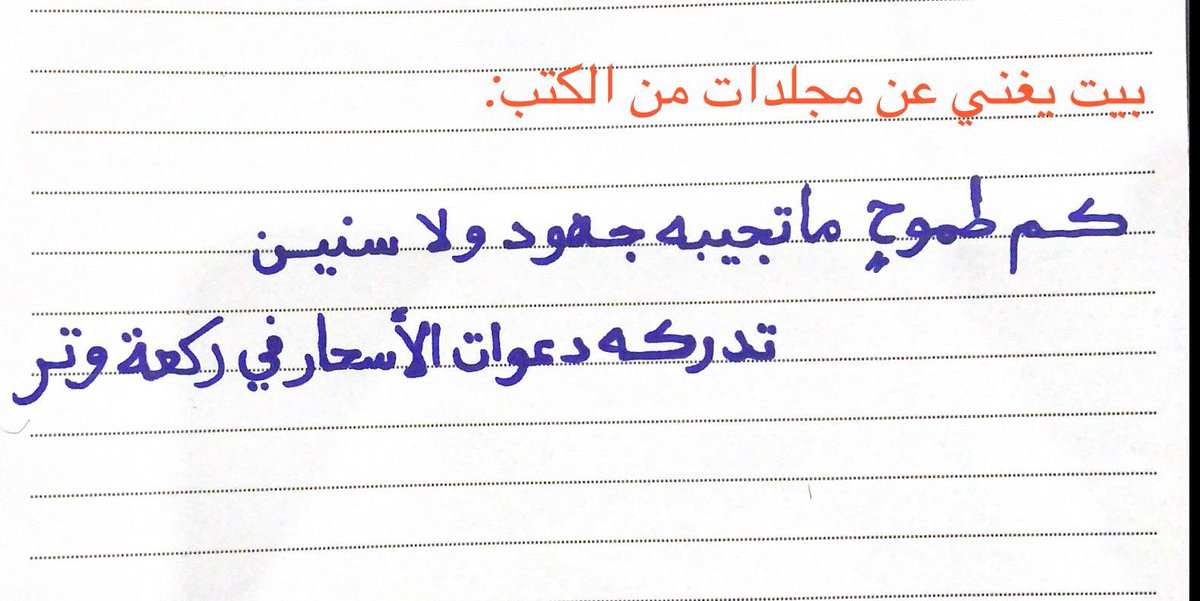 بيت يغني عن مجلدات من الكتب:
كم طموحٍ ماتجيبه جهود ولا سنين
تدركه دعوات الأسحار في ركعة وتر